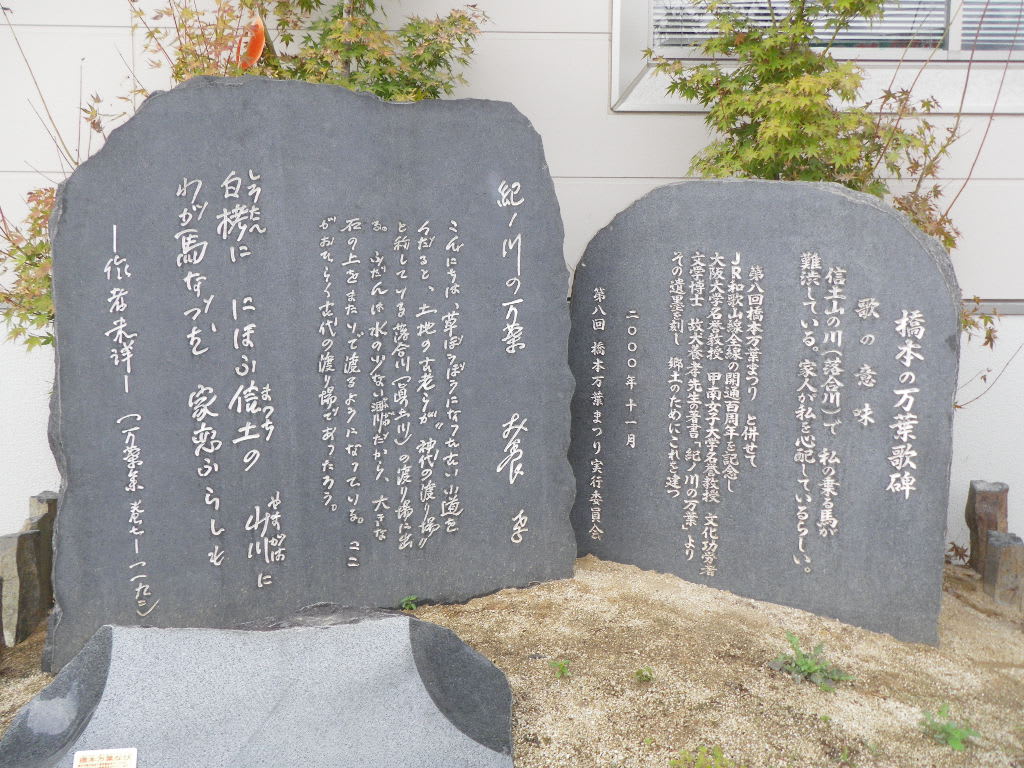 橋本の万葉歌碑
歌の意味
信土山の川(落合川)で 私の乗る馬が
難渋している。家人が私を心配しているらしい。
第八回橋本万葉まつり と併せて
JR和歌山線全線の開通百周年を記念し
大阪大学名誉教授 甲南女子大学名誉教授 文化功労者
文学博士 故犬養孝先生の著書「紀ノ川の万葉」より
その遺墨を刻し 郷土のためにこれを建つ
二〇〇〇年十一月
第八回 橋本万葉まつり実行委員会
紀ノ川の万葉 犬養 孝
草ぼうぼうになつた 小道を
くだると、土地の古老らが“神代の渡り場”
と称している落合川(県境の川)の渡り場に出
る。ふだんは水の少ない瀬だから、大きな
石の上をまたいで渡るようになつている。ここ
がおそらく古代の渡り場であつたろう。
白栲に にほふ信土の 山川に
わが馬なづむ 家恋ふらしも
―作者未詳― (万葉集 巻七―一一九二)